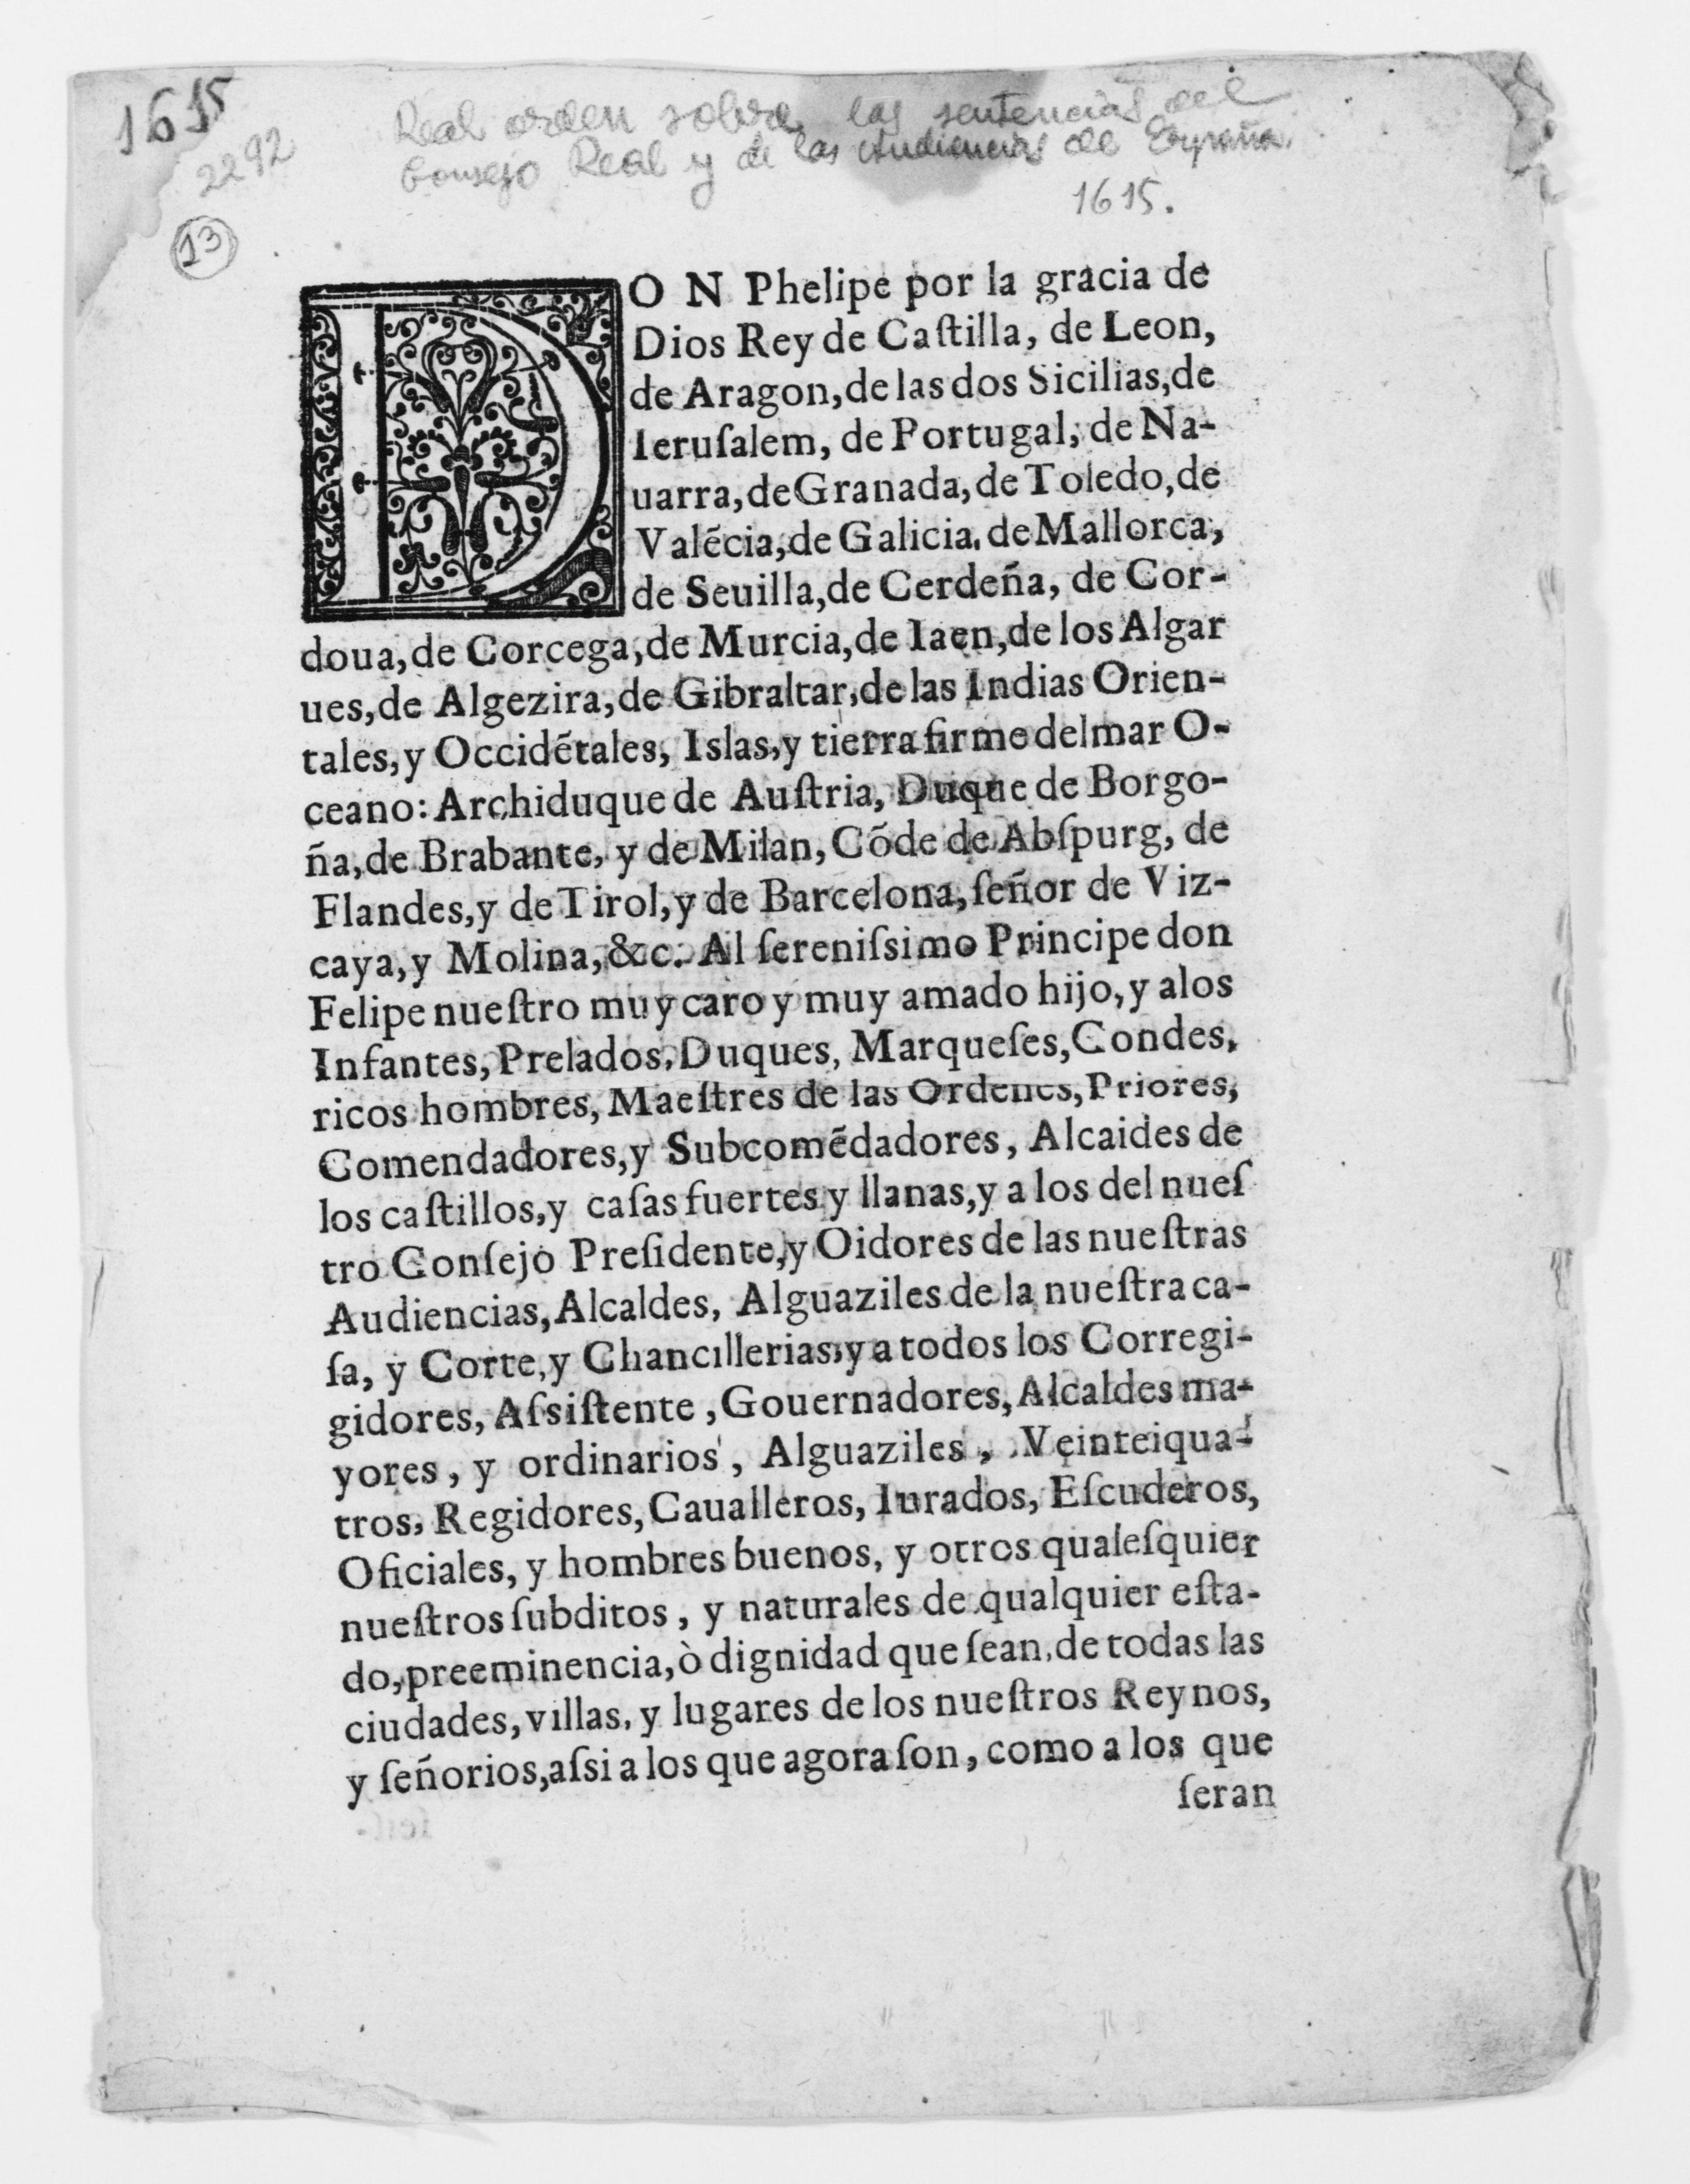 1615
2292
13
Real orden sobre las sentencias del
Consejo Real y de las Audiencias de España.
1615.
DON Phelipe por la gracia de
Dios Rey de Caſtilla, de Leon,
de Aragon, de las dos Sicilias, de
Ieruſalem, de Portugal, de Na-
uarra, de Granada, de Toledo, de
Valẽcia, de Galicia, de Mallorca,
de Seuilla, de Cerdeña, de Cor-
doua, de Corcega, de Murcia, de Iaen, de los Algar
ues, de Algezira, de Gibraltar, de las Indias Orien-
tales, y Occidẽtales, Islas, y tierra firme del mar O-
ceano: Archiduque de Auſtria, Duque de Borgo-
ña, de Brabante, y de Milan, Cõde de Abſpurg, de
Flandes, y de Tirol, y de Barcelona, ſeñor de Viz-
caya, y Molina, &c. Al ſereniſsimo Principe don
Felipe nueſtro muy caro y muy amado hijo, y alos
Infantes, Prelados, Duques, Marqueſes, Condes,
ricos hombres, Maeſtres de las Ordenes, Priores,
Comendadores, y Subcomẽdadores, Alcaides de
los caſtillos, y caſas fuertes y llanas, y a los del nueſ
tro Conſejo Preſidente, y Oidores de las nueſtras
Audiencias, Alcaldes, Alguaziles de la nueſtra ca-
ſa, y Corte, y Chancillerias, y a todos los Corregi-
gidores, Aſsiſtente, Gouernadores, Alcaldes ma-
yores, y ordinarios, Alguaziles, Veinteiqua-
tros, Regidores, Caualleros, Iurados, Eſcuderos,
Oficiales, y hombres buenos, y otros qualeſquier
nueſtros ſubditos, y naturales de qualquier eſta-
do, preeminencia, ò dignidad que ſean, de todas las
ciudades, villas, y lugares de los nueſtros Reynos,
y ſeñorios, aſsi a los que agora ſon, como a los que
ſeran